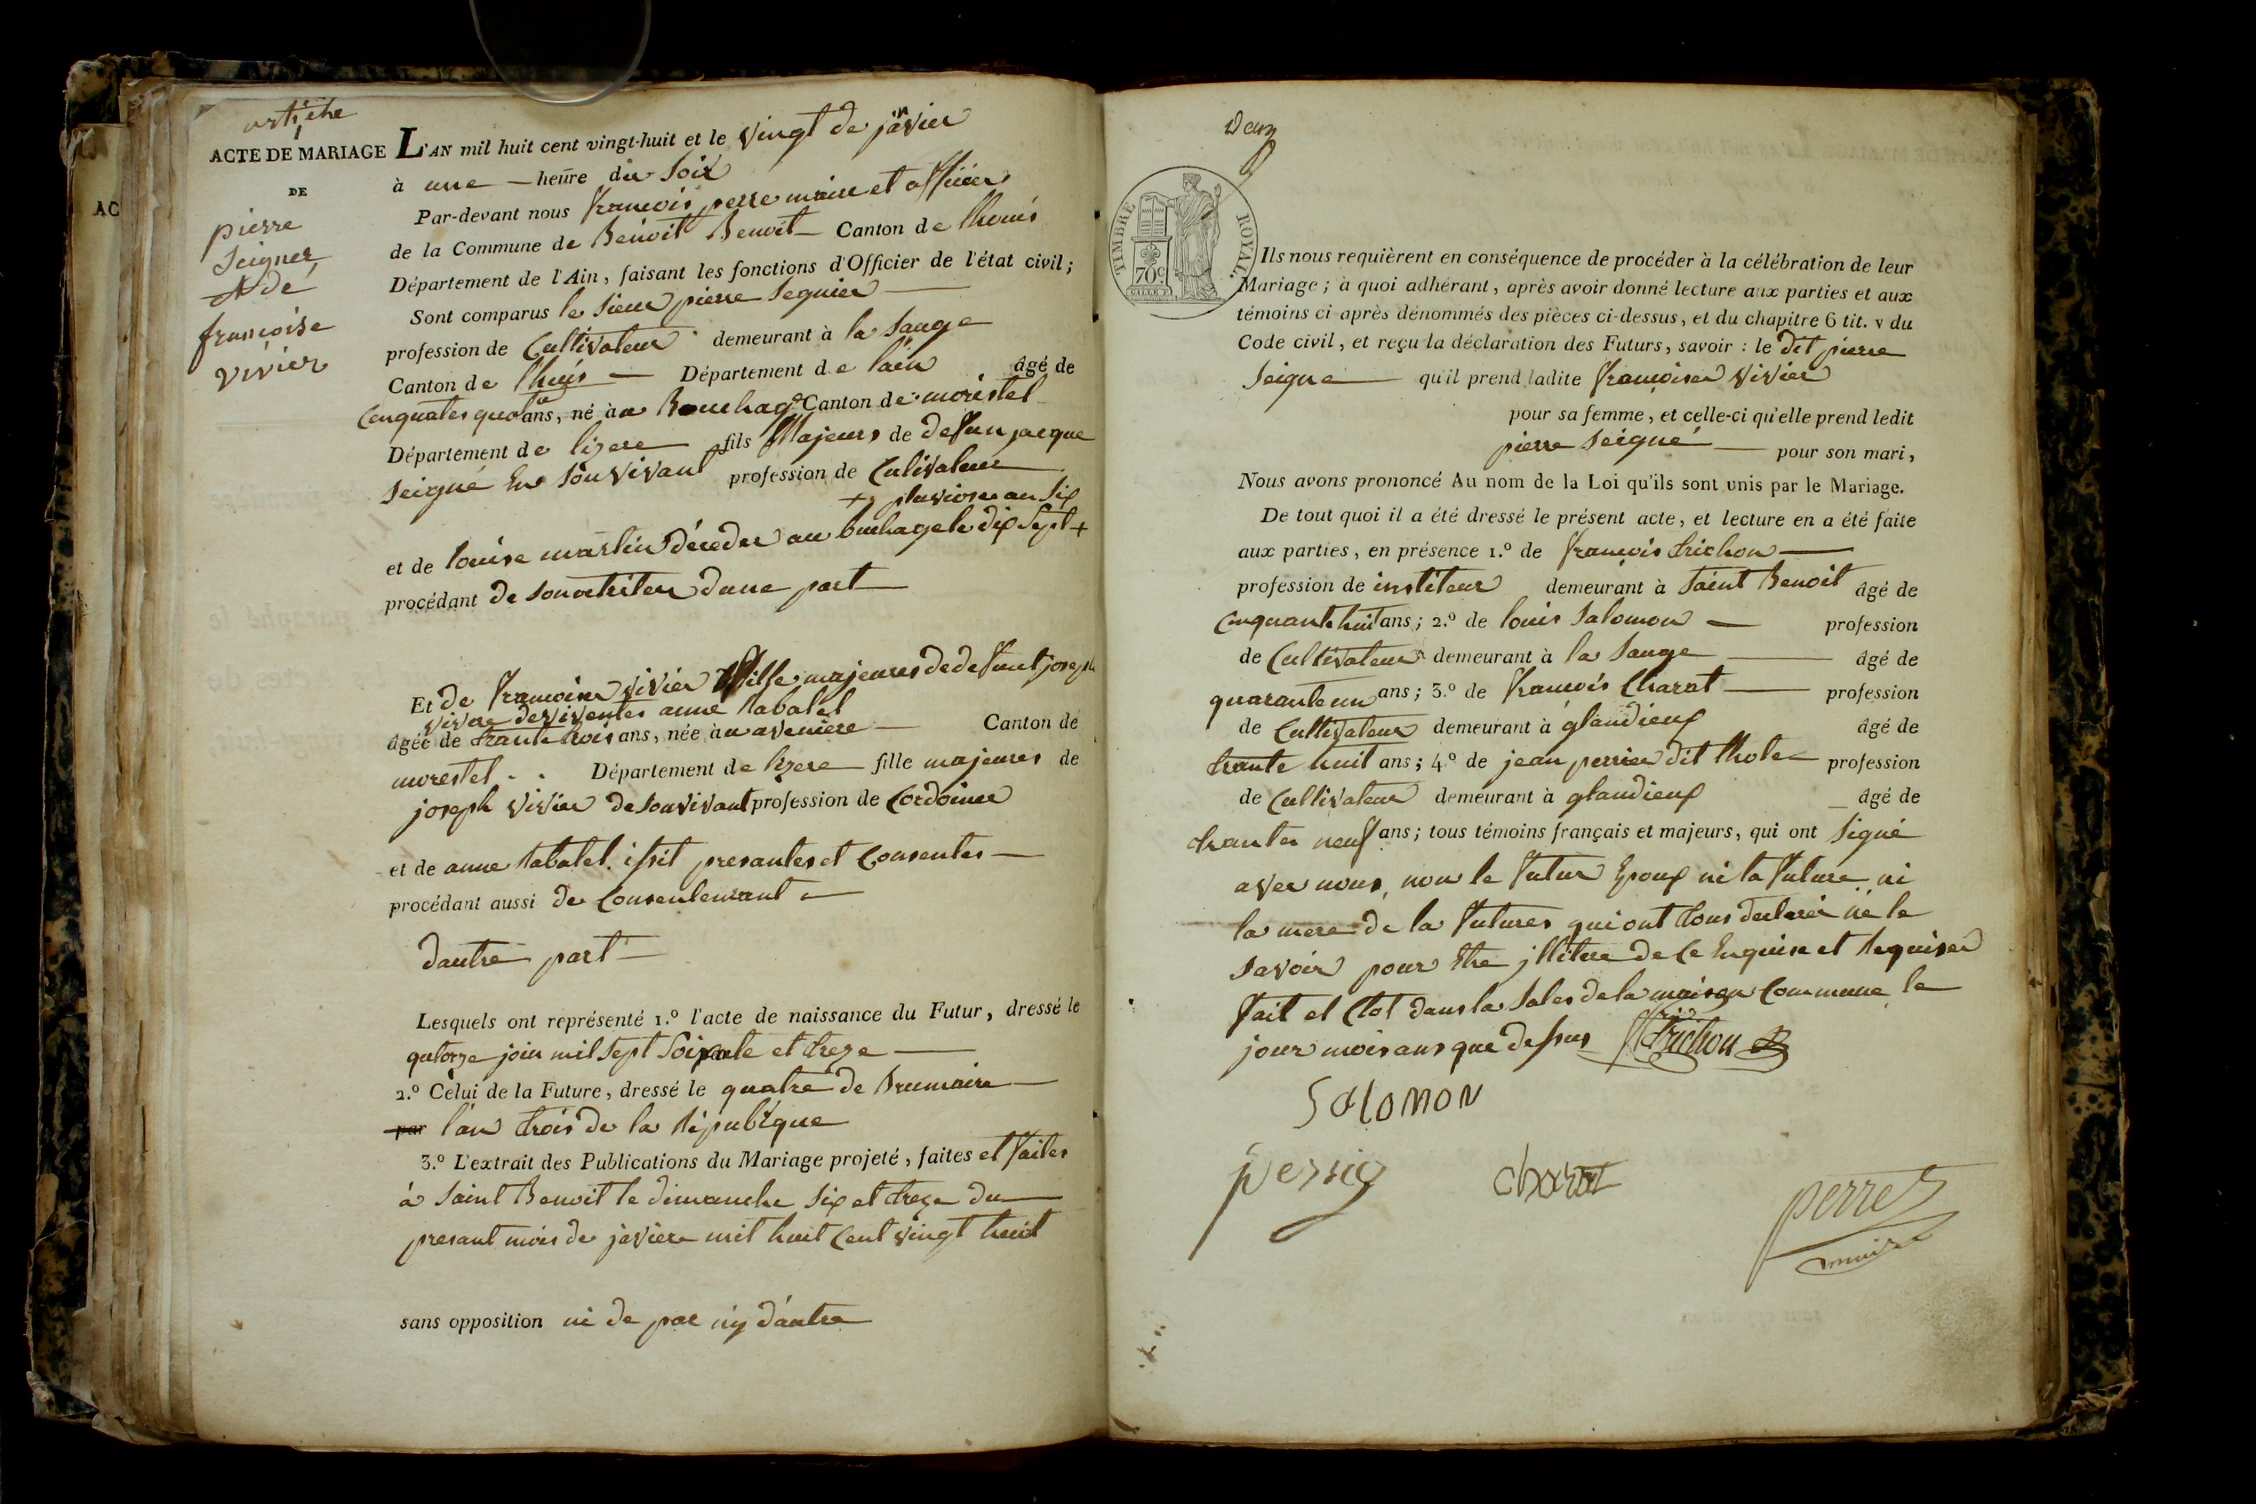 artiche
1
ACTE DE MARIAGE
DE
pierre
Seigner
et de
françoise
vivier
AC
L'AN mil huit cent vingt-huit et le vingt de janvier
à une heure du Soir
Par-devant nous françois perre maire et officier
de la Commune de Benoit Benoit Canton de lhuis
Département de l'Ain, faisant les fonctions d'Officier de l'état civil;
Sont comparus le Sieur pierre Seguier
profession de Cultivateur demeurant à la Sauge
Canton de lhuis Département de lain âgé de
Cinquates quatre ans, né à au Bouchage Canton de morestel
Département de lizere fils Majeurs de defun jacque
Seigné En Son vivant profession de Culivateur
+ pluviose an Six
et de louise martin décedee au buchage le dix Sept +
procédant de d'une part
Et de francoise vivier fille majeures de defunt joseph
vivier de vivantes anne tabalet
âgée de trante trois ans, née à au aveniere Canton de
morestel Département de lizere fille majeures de
joseph vivier de Son vivant profession de Cordoiner
et de anne tabalet issit presantes et Consentes
procédant aussi de Consentemant
dautre part
Lesquels ont représenté 1.º l'acte de naissance du Futur, dressé le
quatorze join mil Sept Soixante et treze
2.º Celui de la Future, dressé le quatre de Brumaire
par l'an trois de la Republique
3.º L'extrait des Publications du Mariage projeté, faites et faites
à Saint Benoit le dimanche Six et treze du
presant mois de javiere mil huit Cent vingt huit
sans opposition ni de par ny d'autre
Deux
TIMBRE ROYAL.
70 c.
Ils nous requièrent en conséquence de procéder à la célébration de leur
Mariage; à quoi adhérant, après avoir donné lecture aux parties et aux
témoins ci-après dénommés des pièces ci-dessus, et du chapitre 6 tit. v du
Code civil, et reçu la déclaration des Futurs, savoir: le dit pierre
Seigne qu'il prend ladite francoise vivier
pour sa femme, et celle-ci qu'elle prend ledit
pierre Seigné pour son mari,
Nous avons prononcé Au nom de la Loi qu'ils sont unis par le Mariage.
De tout quoi il a été dressé le présent acte, et lecture en a été faite
aux parties, en présence 1.º de françois trichon
profession de institeur demeurant à Saint Benoit âgé de
Cinquante huit ans; 2.º de louis Salomon profession
de Cultivateur demeurant à la Sauge âgé de
quarante un ans; 3.º de françois Charat profession
de Cultivateur demeurant à glandieux âgé de
trante huit ans; 4.º de jean perrier dit thole profession
de Cultivateur demeurant à glandieux âgé de
trantes neuf ans; tous témoins français et majeurs, qui ont Signé
avec nous, non le futur Epoux ni la future ni
la mere de la futures qui ont tous declaré ne le
Savoir pour Etre illitere de Ce Enquise et Requise
fait et Clot dans la Sales de la maison Commune le
jour mois ans que dessus trichon
SOLOMON
charat
perret
maire